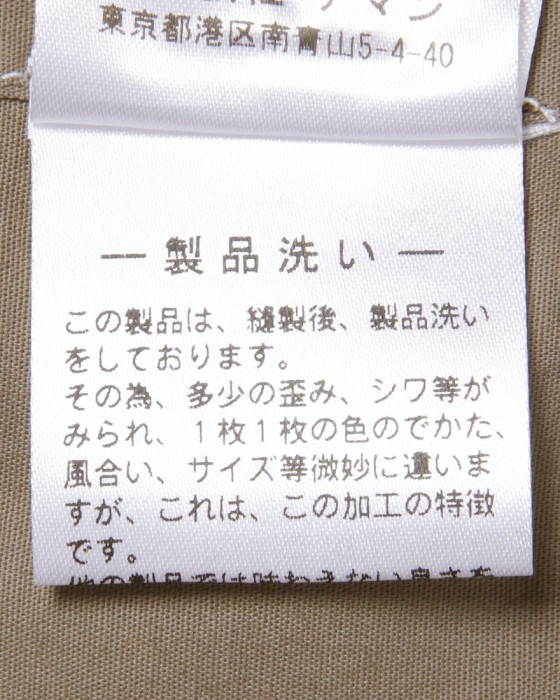 東京都港区南青山5-4-40
― 製品洗い ―
この製品は、縫製後、製品洗い
をしております。
その為、多少の歪み、シワ等が
みられ、1枚1枚の色のでかた、
風合い、サイズ等微妙に違いま
すが、これは、この加工の特徴
です。
他の製品では味わえない